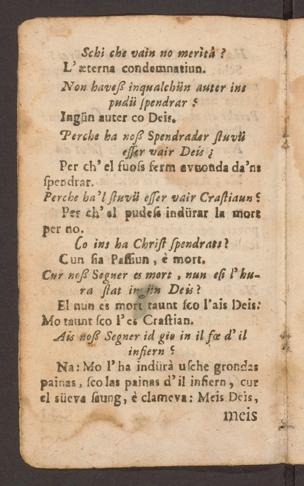 Schi che vain no merità ?
L'æterna condemnatiun.
Non haveß inqualchün auter ins
pudü spendrar ?
Ingün auter co Deis.
Perche ha noß Spendrader stuvü
esser vair Deis ?
Per ch' el fuoss ferm avuonda da'ns
spendrar.
Perche ha'l stuvü esser vair Crastiaun ?
Per ch' el pudess indürar la mort
per no.
Co ins ha Christ spendrats ?
Cun sia Passiun , è mort.
Cur noß Segner es mort , nun eß l' hu-
ra stat in ün Deis ?
El nun es mort taunt sco l'ais Deis:
Mo taunt sco l'es Crastian.
Ais noß Segner id gio in il fœ d' il
infiern ?
Na: Mo l' ha indürà usche grondas
painas, sco las painas d' il infiern , cur
el süeva saung, è clameva: Meis Deis,
meis